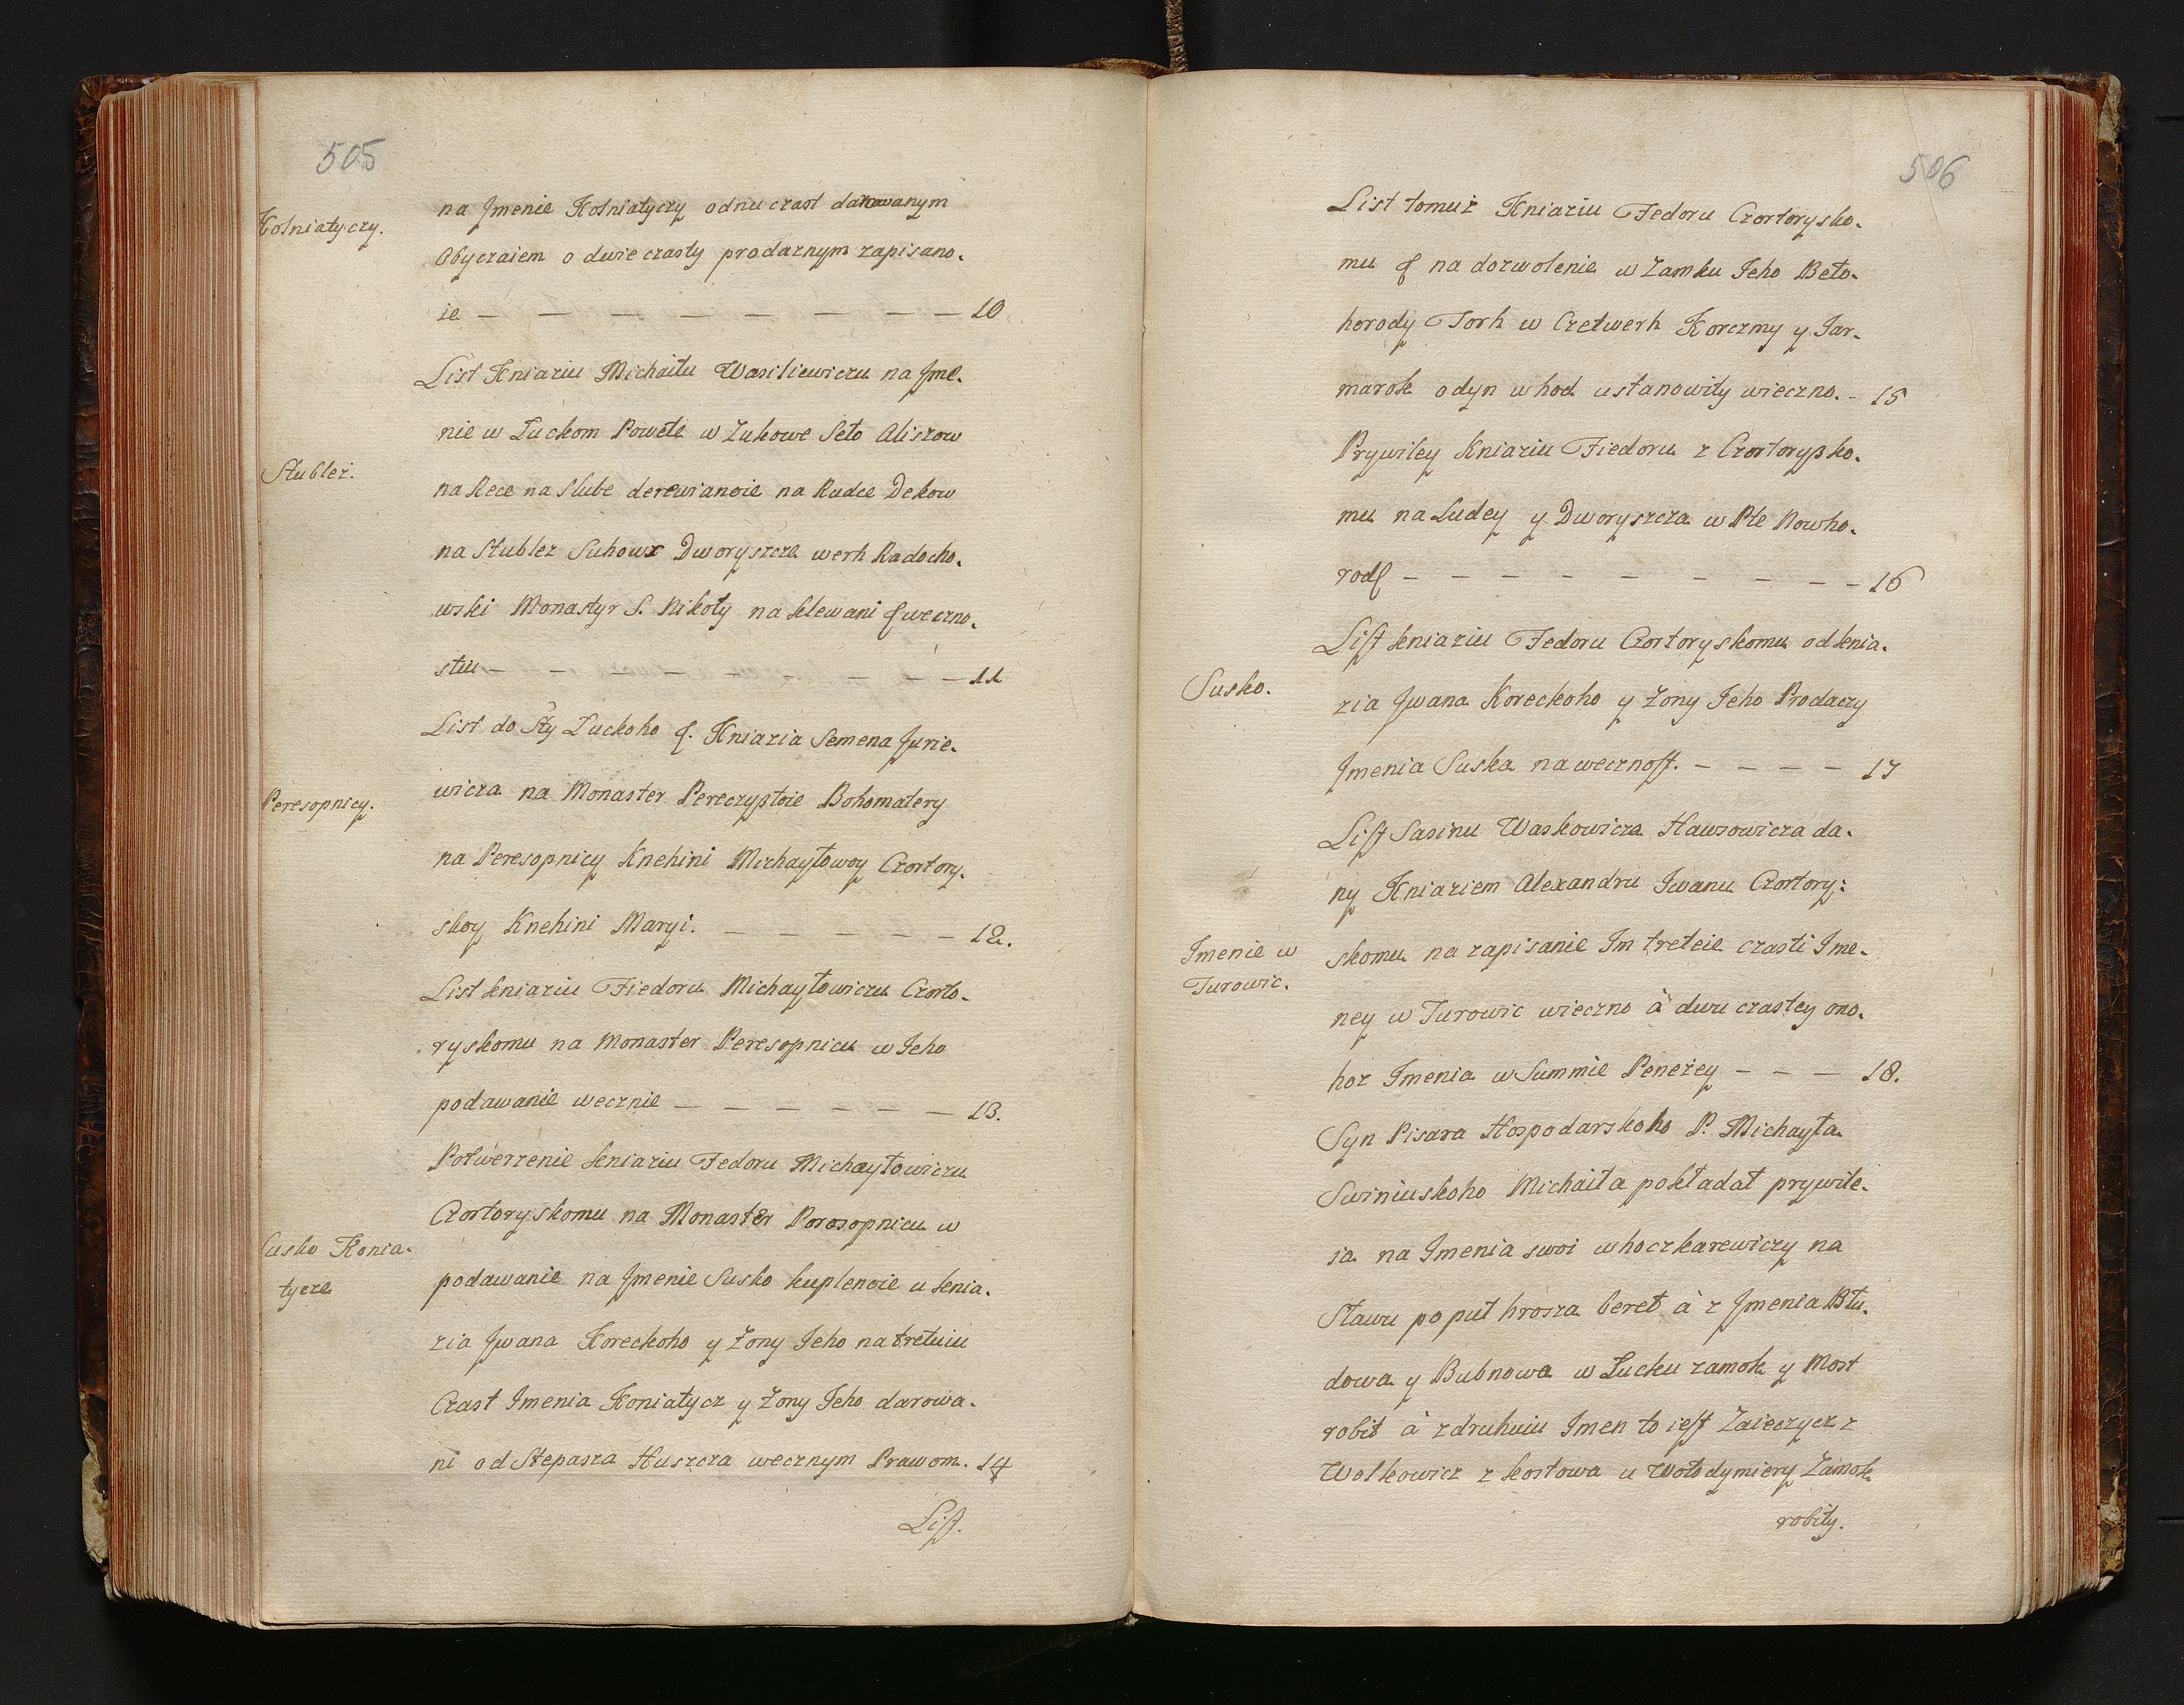 505
Kolniatyczy.
na Jmenie Kolniatyczy odnu czast darowanym
Obyczaiem o dwie czasty prodaznym zapisano.
ie — — — — — — — — 10
List Kniaziu Michaiłu Wasiliewiczu na Jme.
nie w Łuckom Powete w Zukowe Seło Aliszow
Stubleż.
na Rece na Slube derewianoie na Rudce Dekow
na Stublez Suhowx Dworyszcze werh Radocho.
wski Monastyr S. Nikoły na Klewani weczno.
stiu — — — — — — — — 11
List do Sty Łuckoho Kniazia Semena Jurie.
Peresopnicy.
wicza na Monaster Pereczystoie Bohomatery
na Peresopnicy Knehini Michayłowoy Czortory.
skoy Knehini Maryi. — — — — — 12.
List kniaziu Fiedoru Michayłowiczu Czorto-
ryskomu na Monaster Peresopnicu w Jeho
podawanie wecznie — — — — — — 13.
Potwerzenie kniaziu Fedoru Michayłowiczu
Czortoryskomu na Monaster Porosopnicu w
Susko Konia-
tycze
podawanie na Jmenie Susko kuplenoie u knia.
zia Jwana Koreckoho y Zony Jeho na tretuiu
Czast Imenia Koniatycz y Zony Jeho darowa.
ni od Stepasza Huszcza wecznym Prawom. 14
List.
506
List tomuż Kniaziu Fedoru Czortorysko.
mu na dozwolenie w Zamku Jeho Beło-
horody Torh w Czetwerh Korczmy y Jar-
marok odyn w hod ustanowiły wieczno. - 15
Prywiley Kniaziu Fiedoru z Czortorysko.
mu na Ludey y Dworyszcza w Pte Nowho.
rod — — — — — — — — 16
List kniaziu Fedoru Czortoryskomu od knia.
Susko.
zia Jwana Koreckoho y Żony Jeho Prodaczy
Jmenia Suska na wecznost. — — — — 17
List Sasinu Waskowicza Hawsowicza da.
ny Kniaziem Alexandru Iwanu Czortory:
Imenie w
Turowic.
skomu na zapisanie Im treteie czasti Ime-
ney w Turowic wieczno à dwu czastey ono.
hoz Imenia w Summie Peneżey — — — 18.
Syn Pisara Hospodarskoho P. Michayła
Swiniuskoho Michaiła pokładał prywile.
ia na Imenia swoi w hoczkarewiczy na
Stawu po put hrosza beret à z Jmenia Błu.
dowa y Bubnowa w Łucku zamok y Most
robit à zdruhuiu Imen to iest Zaieczycz z
Wolkowicz z kostowa u Wołodymiery Zamok
robiły.